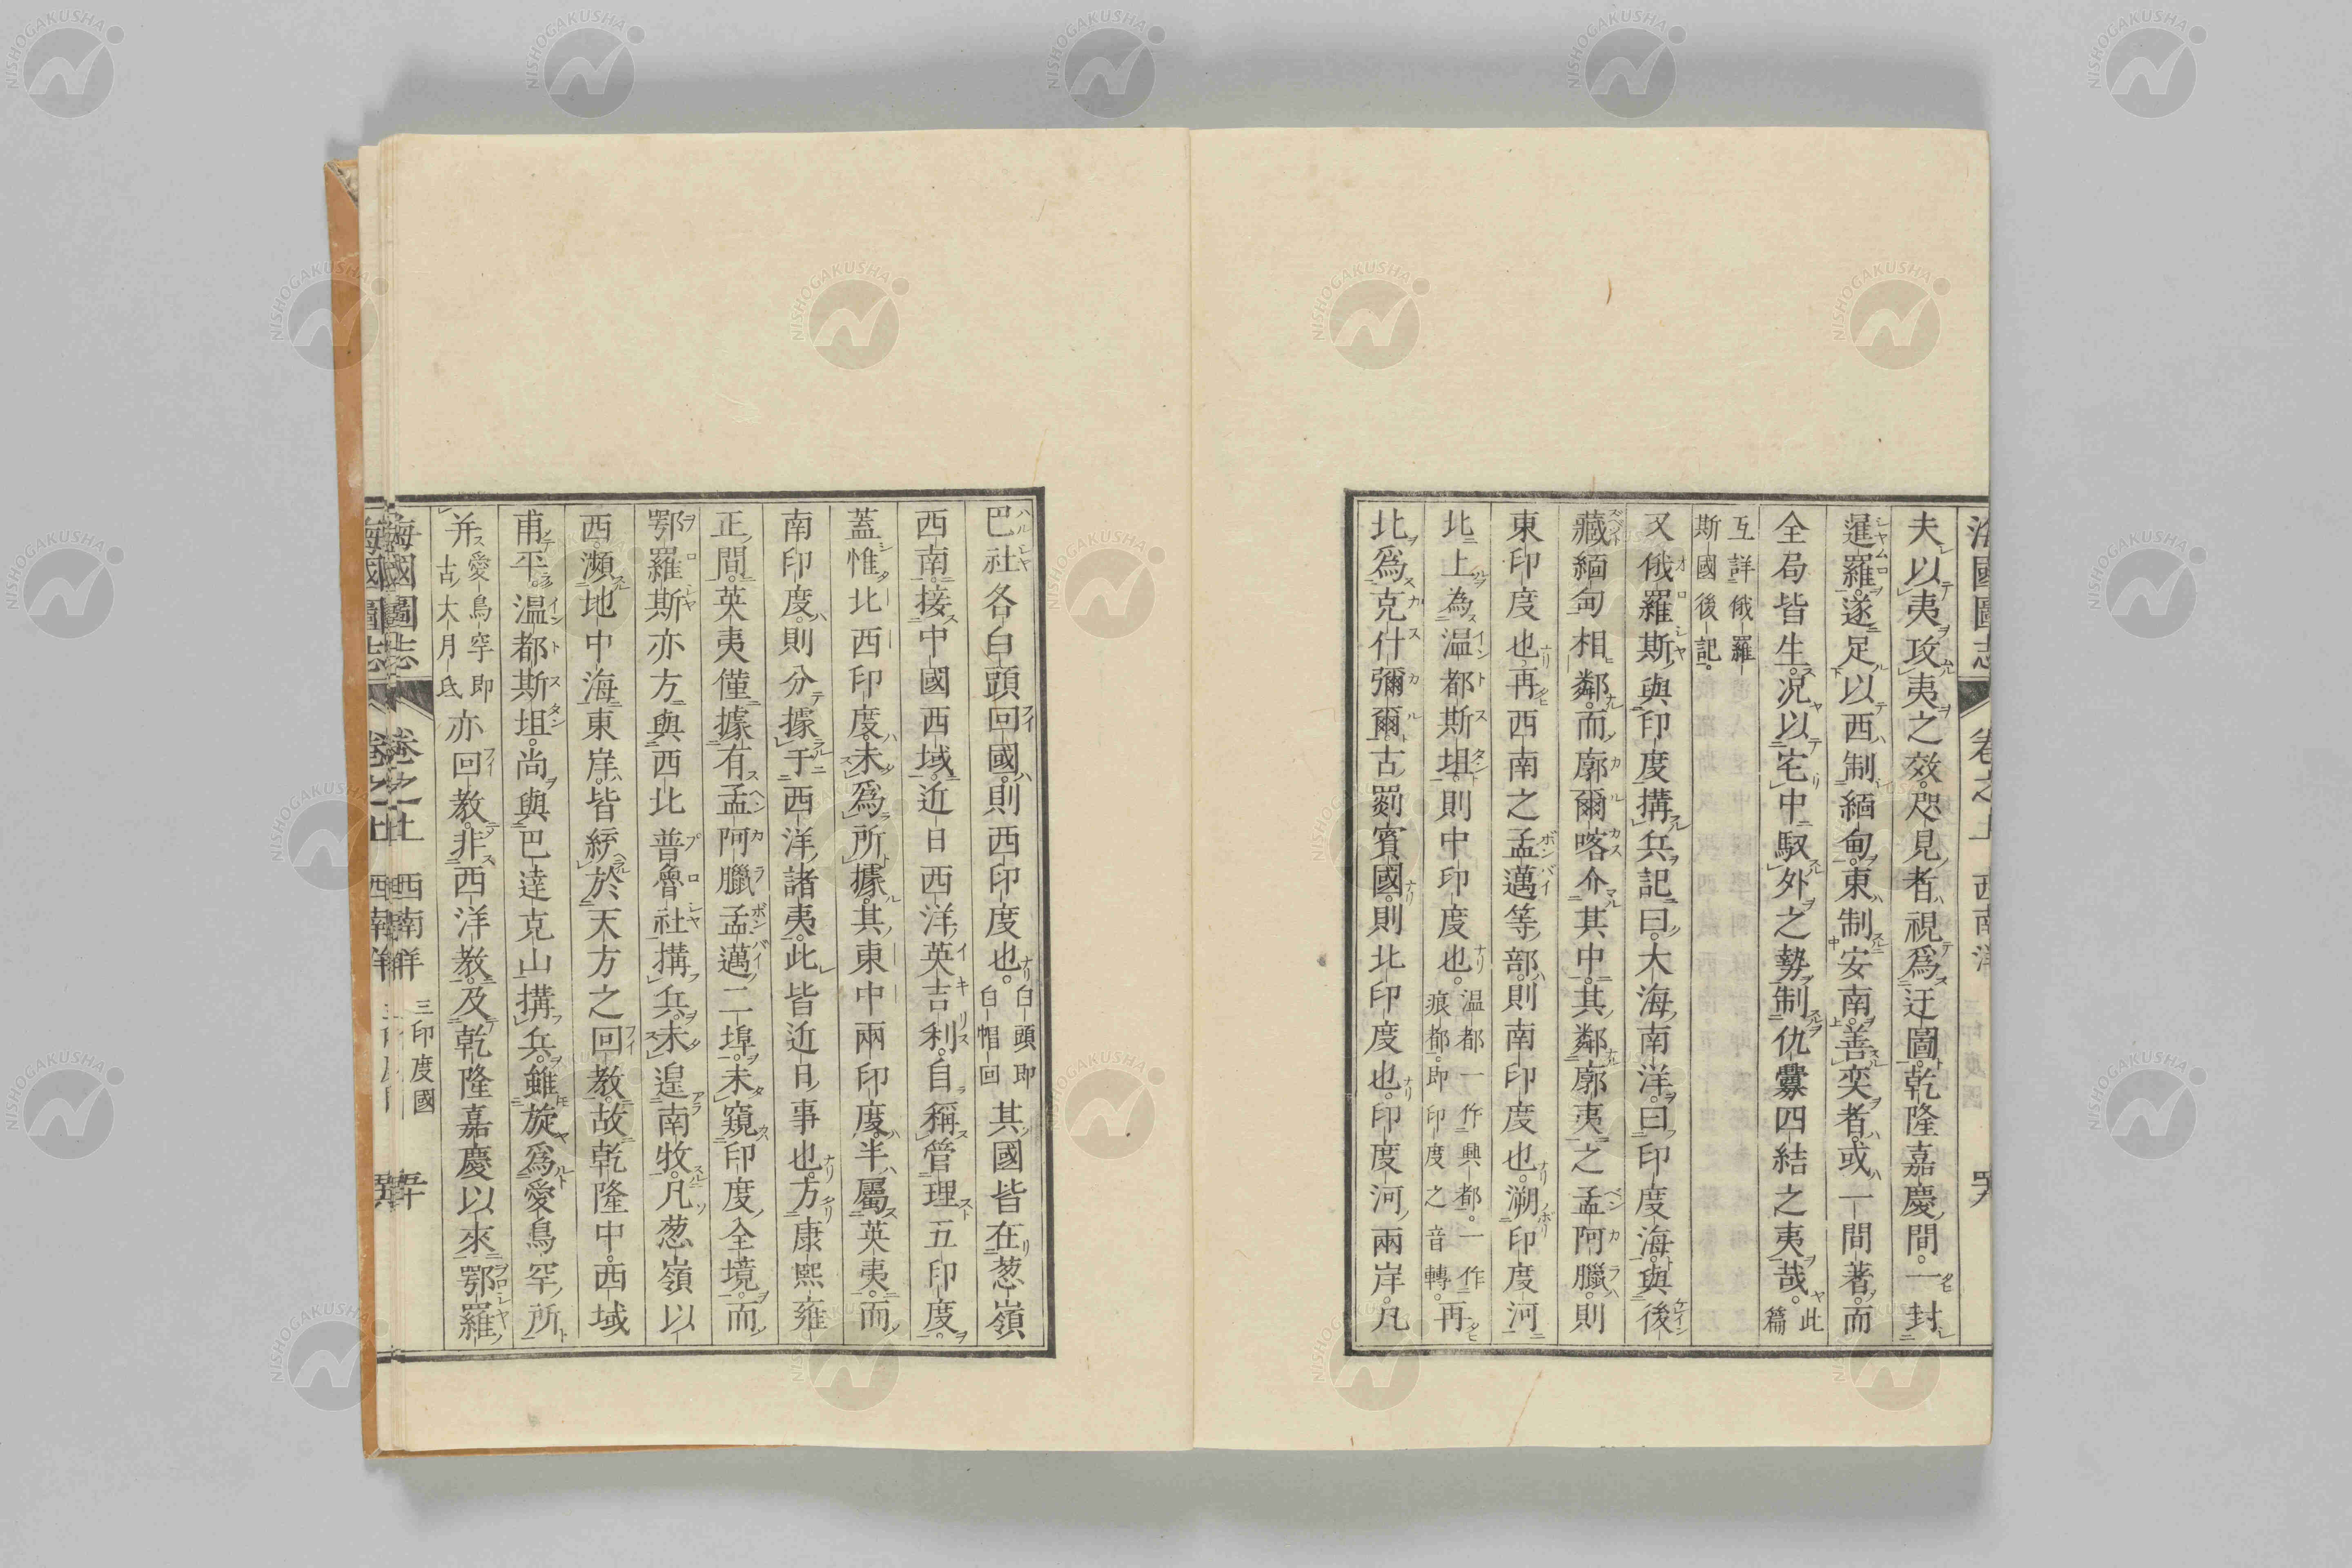 海國圖志 卷之上 西南洋
夫以夷攻夷之效。咫見者視爲迂圖。乾隆嘉慶間。一封
暹羅。遂足以西制緬甸。東制安南。善奕者。或一間著。而
全局皆生。況以宅中馭外之勢。制仇釁四結之夷哉。此篇
互詳俄羅
斯國後記。
又俄羅斯與印度搆兵記曰。大海南洋。曰印度海。與後
藏緬甸相鄰。而廓爾喀介其中。其鄰廓夷之孟阿臘則
東印度也。再西南之孟邁等部。則南印度也。溯印度河
北上爲溫都斯坦。則中印度也。溫都一作興都。一作
痕都。卽印度之音轉。再
北爲克什彌爾。古罽賓國。則北印度也。印度河兩岸。凡
巴社各白頭回國。則西印度也。白頭卽
白帽回其國皆在葱嶺
西南。接中國西域。近日西洋英吉利。自稱管理五印度。
蓋惟北西印度。未爲所據。其東中兩印度。半屬英夷。而
南印度。則分據于西洋諸夷。此皆近日事也。方康熙雍
正間。英夷僅據有孟阿臘孟邁二埠。未窺印度全境。而
鄂羅斯亦方與西北普魯社搆兵。未遑南牧。凡葱嶺以
西。瀕地中海東岸。皆統於天方之回教。故乾隆中。西域
甫平。溫都斯坦。尚與巴達克山搆兵。雖旋爲愛烏罕所
并愛烏罕卽
古大月氏亦回教。非西洋教。及乾隆嘉慶以來。鄂羅
海國圖志 卷之上 西南洋 三印度國